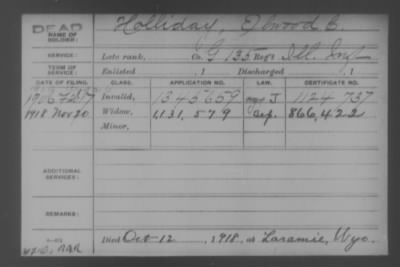 DEAD
NAME OF SOLDIER:
Holliday, Elwood B.
SERVICE:
Late rank, Co. G 135 Reg't Ill. Inf.
TERM OF SERVICE:
Enlisted , 1 Discharged , 1
DATE OF FILING. CLASS. APPLICATION NO. LAW. CERTIFICATE NO.
Invalid, 1345659 J 1124 737
1918 Nov. 20. Widow, 1,131,579 866,422
Minor,
ADDITIONAL SERVICES:
REMARKS:
Died Oct-12, 1918, at Laramie, Wyo.